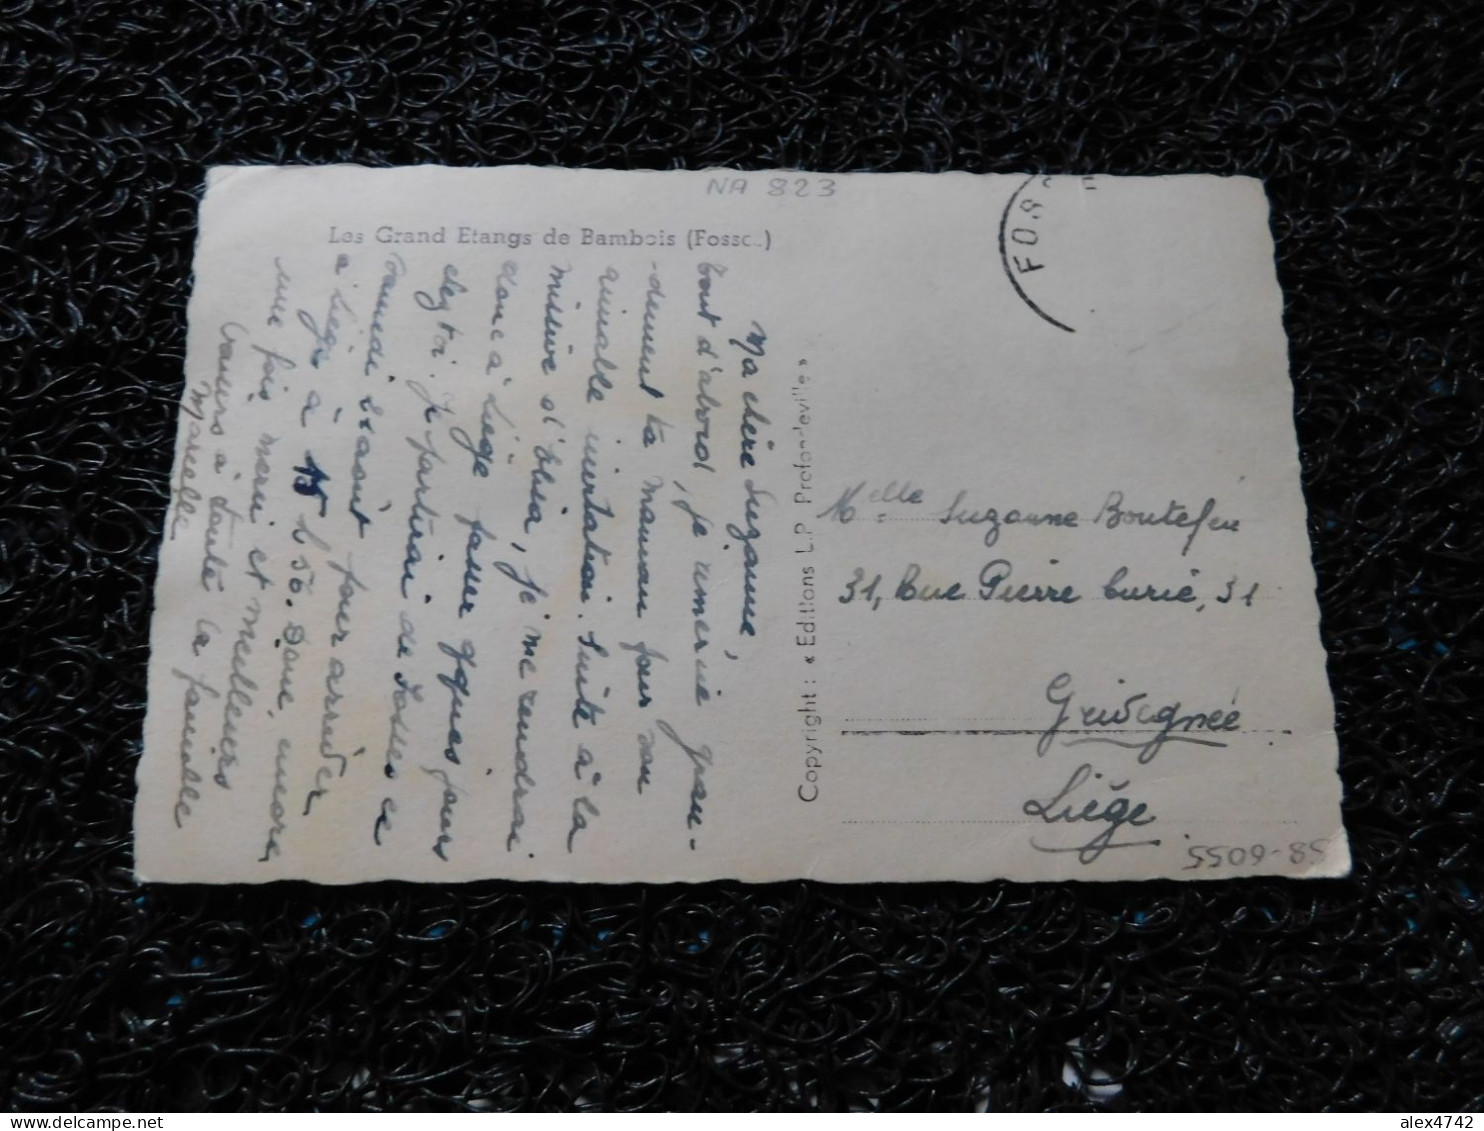 NA 823
Les Grand Etangs de Bambois (Fosses)
Ma chère Suzanne,
Tout d'abord, je remercie gran-
-dement ta maman pour son
aimable invitation. Suite à la
missive d'Elsa, je me rendrai
donc à Liège passer qques jours
chez toi. Je partirai de Fosses ce
samedi
à Liège à 15 h 50. Donc, encore
une fois merci et meilleurs
baisers à toute la famille
Marcelle
Copyright : « Editions L.P. Profondeville »
FOS
Melle Suzanne Boutefeu
31, Rue Pierre Curie, 31
Grivegnée
Liège
5509-85
alex4742